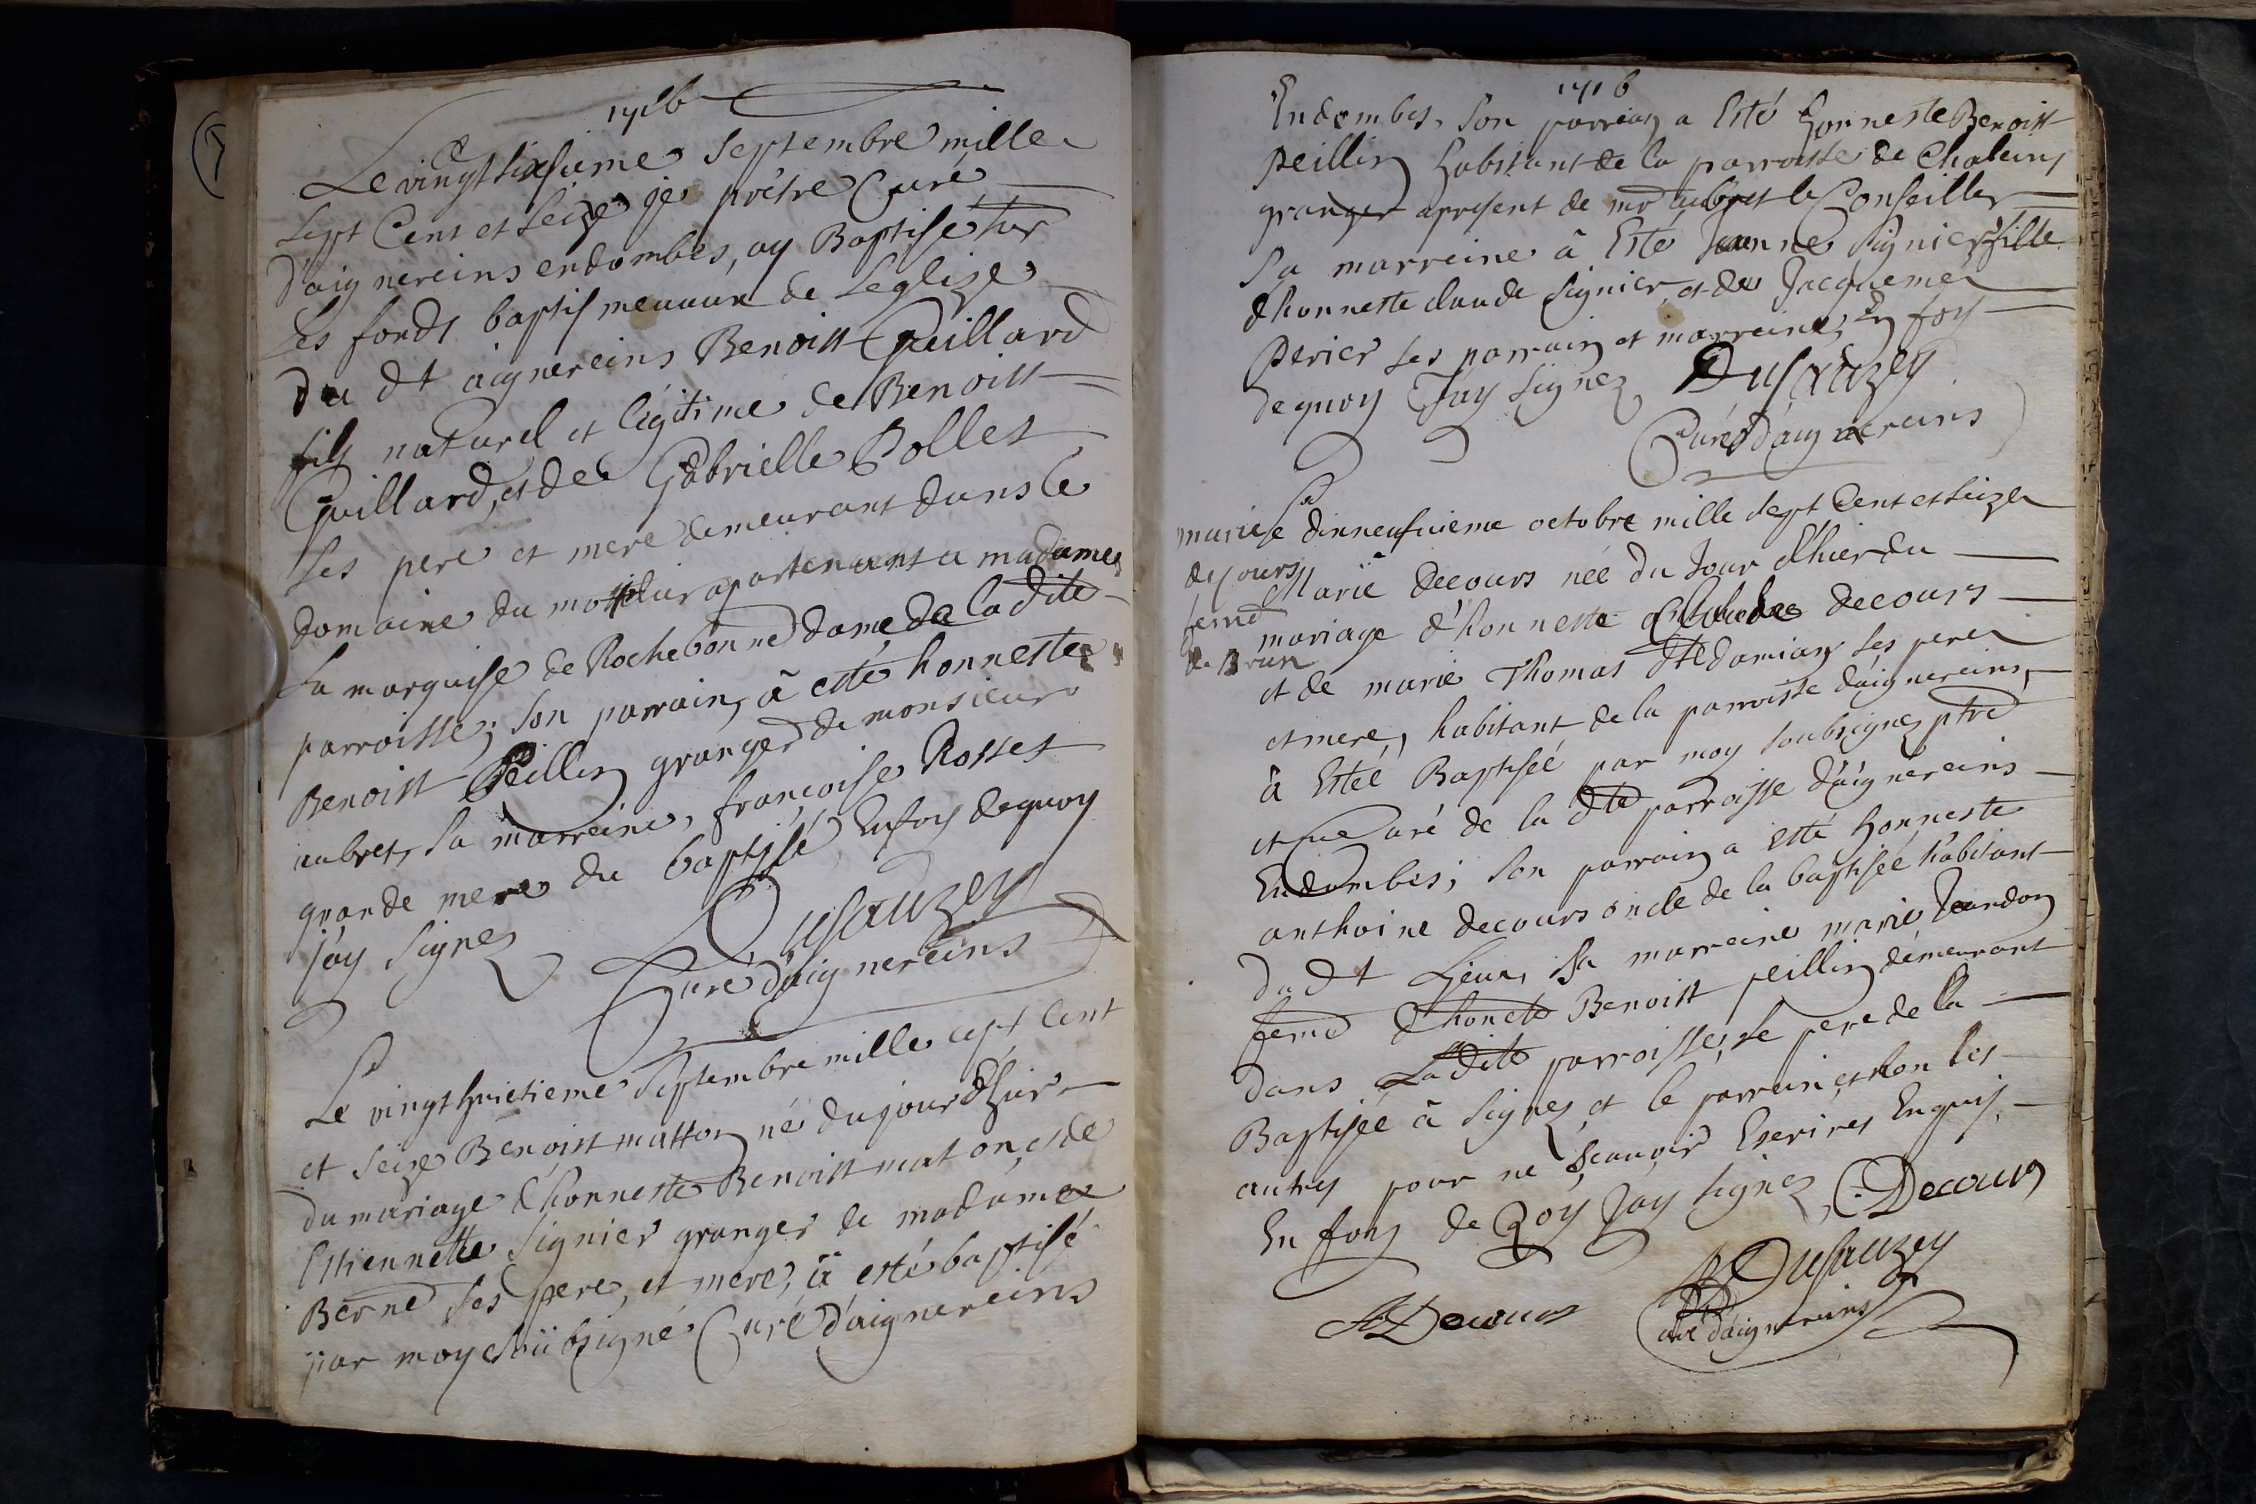 1716
Le vingt sixsieme septembre mille
sept Cent et seize je prêtre Curé
d'aignereins endombes, ay Baptisé sur
Les fonds baptismeuaux de Leglize
du dt aignereins Benoist Guillard
fils naturel et légitime de Benoist
Guillard, et de Gabrielle Pollet
ses pere et mere demeurant dans le
domaine du apartenant a madame
La marquise de Rochebonne dame de la dite
parroisse; son parrain à esté honneste
Benoist Peillin granger de monsieur
aubret, sa marreine, françoise Rosset
grande mere du baptisé Enfoy dequoy
j'ay signez Dusauzey
Curé d'aignereins
Le vingt huitieme septembre mille cept Cent
et seize Benoist matton né du jour d'huir
du mariage d'honneste Benoist maton, et de
Estiennette Signier granger de madame
Berne ses pere, et mere, à esté baptisé
par moy soubsigné Curé d'aignereins
1716
Endombes, son parrain a Esté honneste Benoist
Peillin habitant de la parroisse de Chaleins
granger apresent de mr aubret le Conseiller
sa marreine à Este Jeanne Signier fille
d'honneste claude signier et de Jacqueme
Perier ses parrain et marreine, En foy
dequoy J'ay signez Dusauzey
Curé d'aignereins
marie
decours
femme
de Brun
Le dixneufuieme octobre mille sept Cent et seize
Marie Decours née du Jour d'hier du
mariage d'honneste Claude decours
et de marie Thomas dt damian ses pere
et mere, habitant de la parroisse d'aignereins,
à Estée Baptisée par moy soubsignez ptre
et Curé de la dte parroisse d'aignereins
Endombes; son parrain a esté honneste
anthoine decours oncle de la baptisée habitant
du dt Lieu, sa marreine marie Jeandon
feme d'honete Benoist peillin demeurant
dans Ladite parroisse, le pere de la
Baptisée à signez et le parrain, et non les
autres pour ne sçauoir Escrires Enquis,
En foy de Qoy J'ay signez C. Decours
A Decours Dusauzey
curé d'aignereins